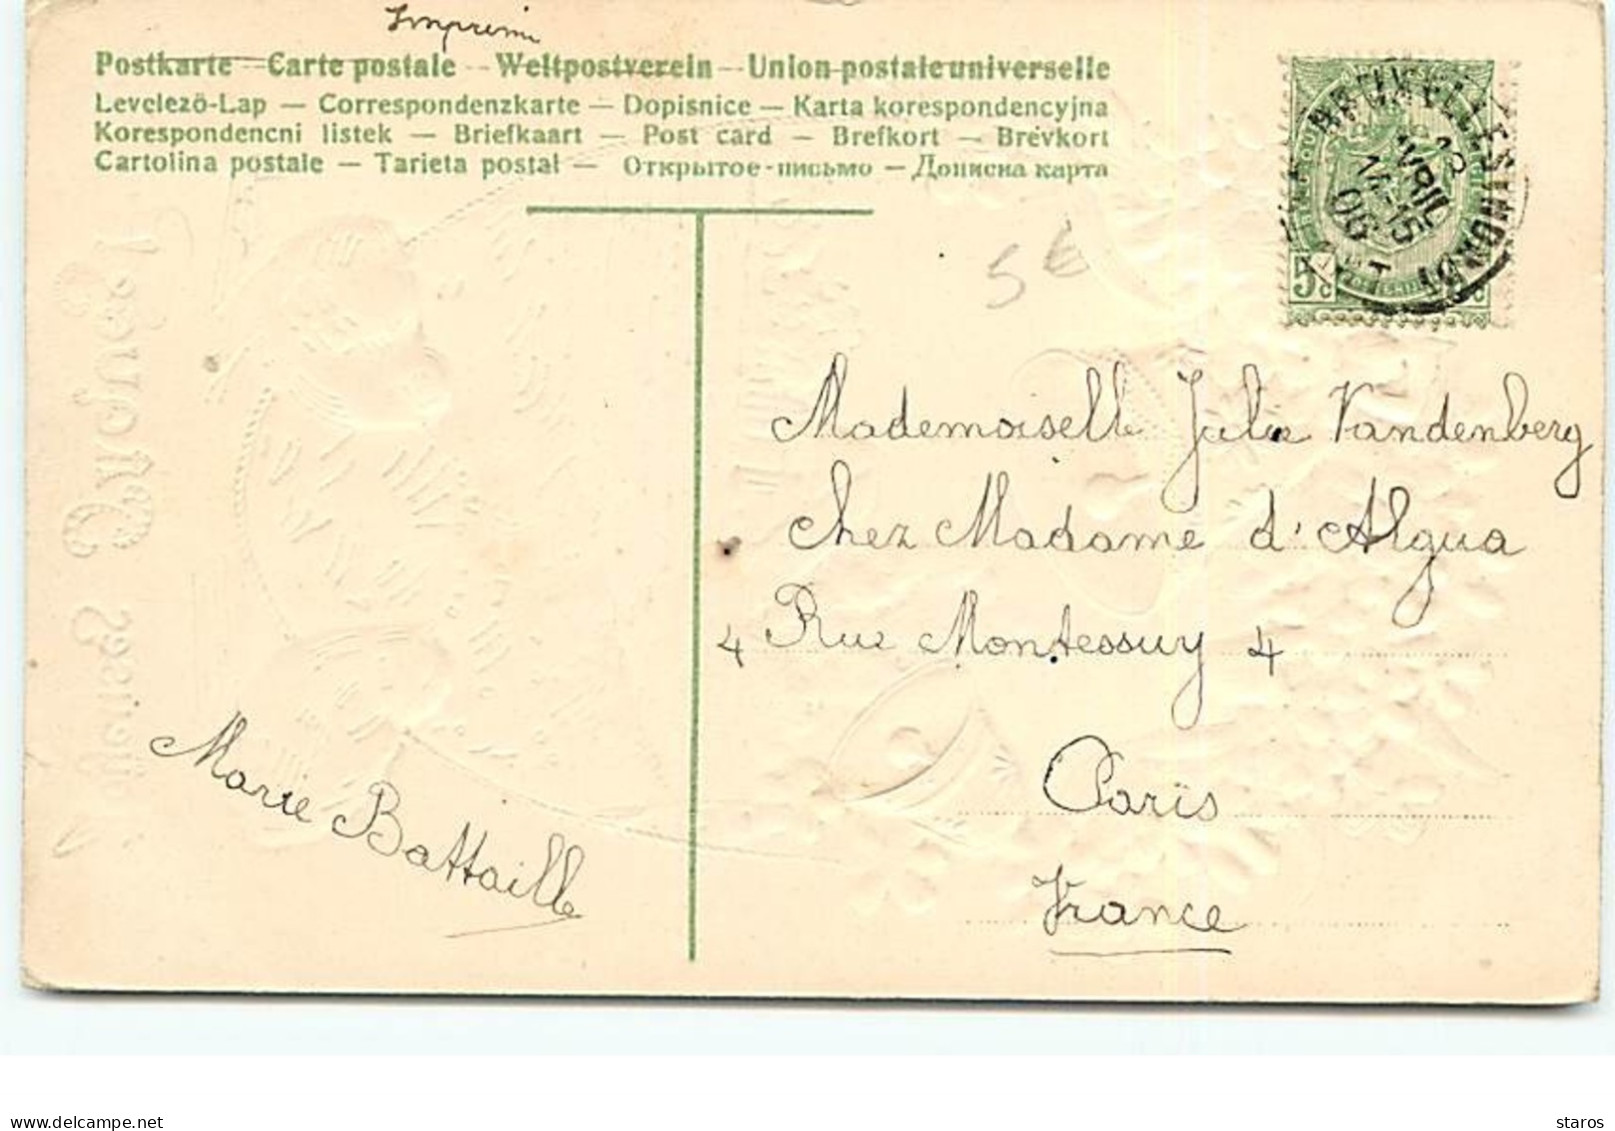 Imprimé
Postkarte — Carte postale — Weltpostverein — Union postale universelle
Levelező-Lap — Correspondenzkarte — Dopisnice — Karta korespondencyjna
Korespondencni listek — Briefkaart — Post card — Brefkort — Brevkort
Cartolina postale — Tarjeta postal — Открытое-письмо — Дописна карта
5€
BRUXELLES
AVRIL
14-15
06
5c
Mademoiselle Julie Vandenberg
Chez Madame d'Algua
4 Rue Montessuy 4
Paris
France
Marie Battaille
delcampe.net
staros